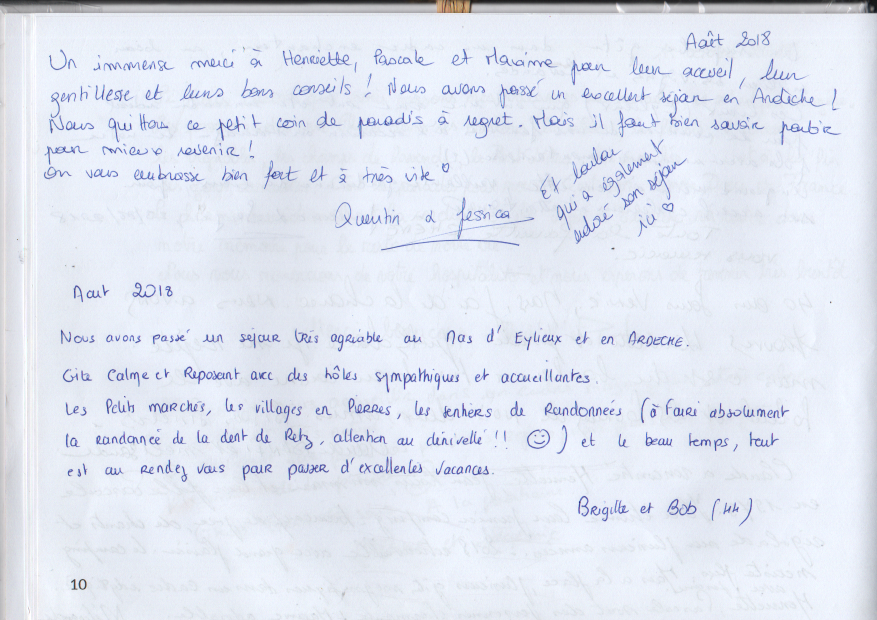 Août 2018
Un immense merci à Henriette, Pascale et Marianne pour leur accueil, leur
gentillesse et leurs bons conseils ! Nous avons passé un excellent séjour en Ardèche !
Nous quittons ce petit coin de paradis à regret. Mais il faut bien savoir partir
pour mieux revenir !
On vous embrasse bien fort et à très vite ♡
Quentin & Jessica
Et Loulou
qui a également
adoré son séjour
ici ♡
Aout 2018
Nous avons passé un séjour très agréable au Mas d'Eylieux et en ARDECHE.
Gite Calme et Reposant avec des hôtes sympathiques et accueillantes.
Les Petits marchés, les villages en Pierres, les sentiers de Randonnées (à faire absolument
la randonnée de la dent de Retz, attention au dénivellé !! ☺) et le beau temps, tout
est au rendez vous pour passer d'excellentes vacances.
Brigitte et Bob (44)
10